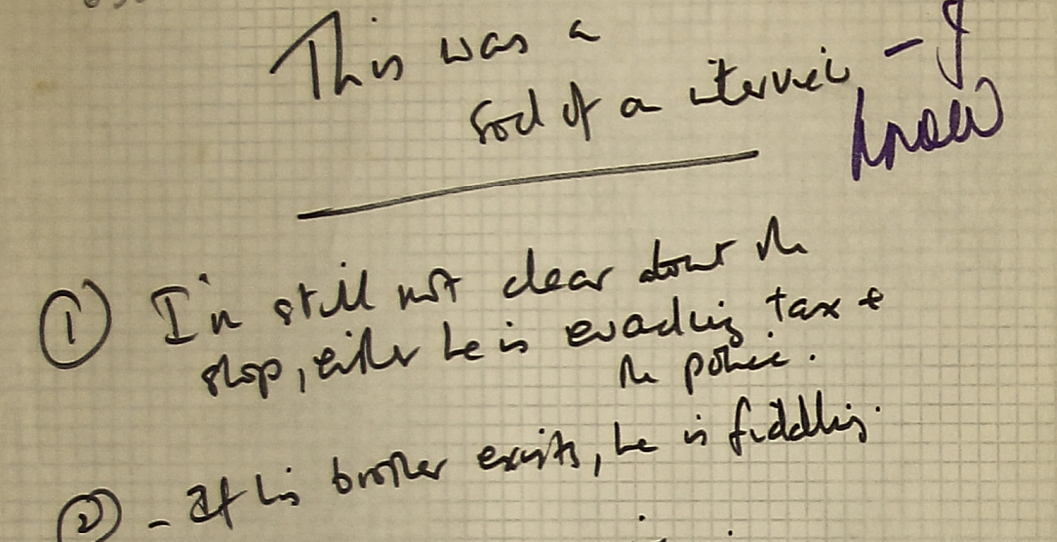 This was a
sod of a interview – I
know
① I'm still not clear about the
shop, either he is evading tax +
the police.
② – If his brother exists, he is fiddling.